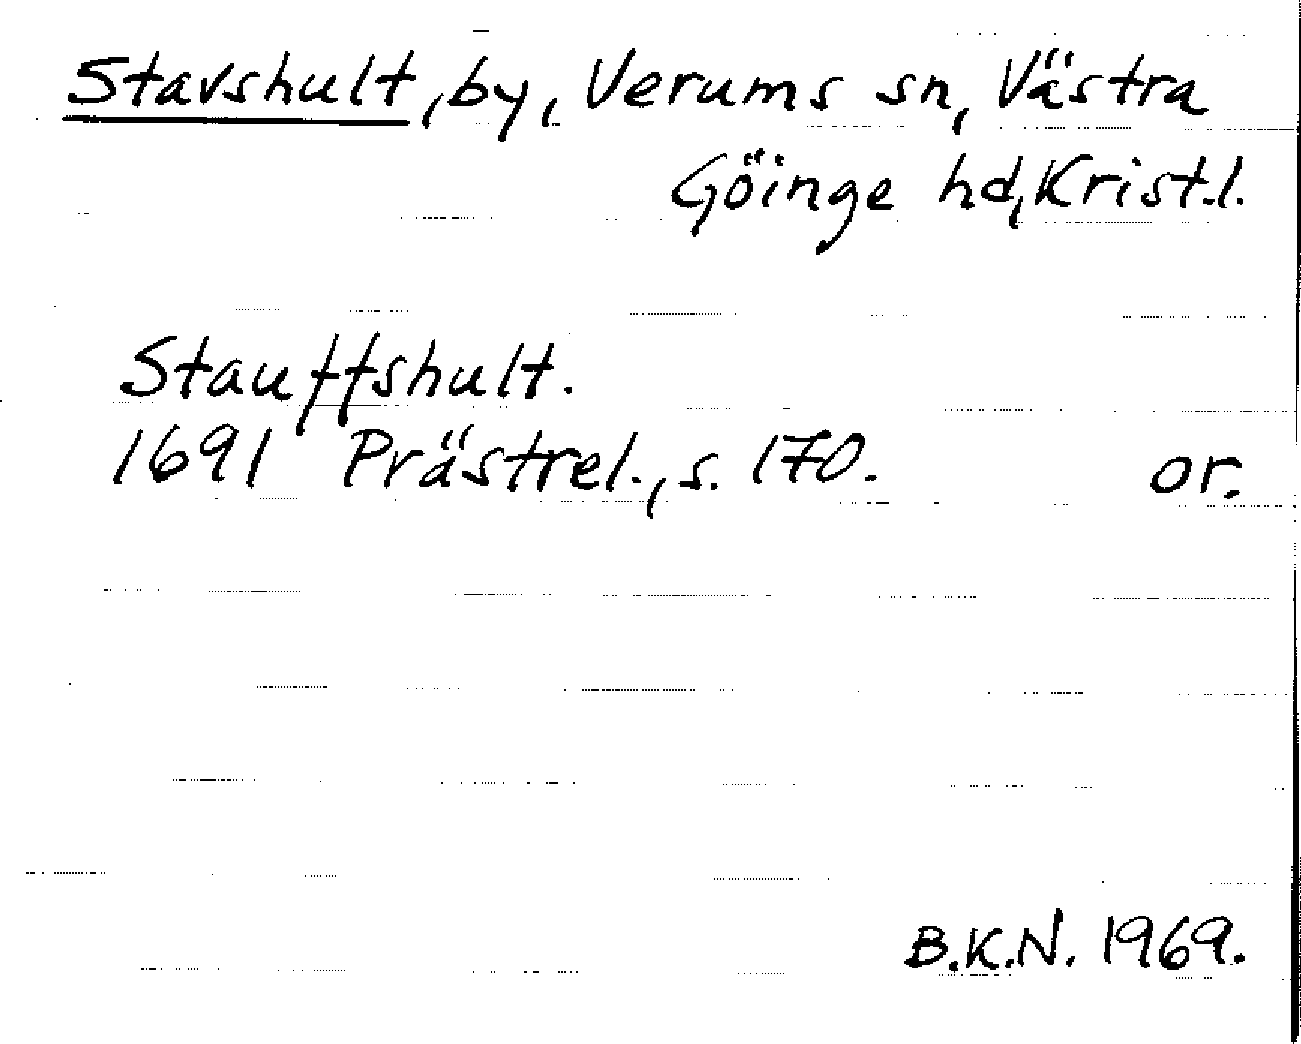 Stavshult, by, Verums sn, Västra
Göinge hd, Krist.l.
Stauffshult.
1691 Prästrel., s. 170. or.
B.K.N. 1969.